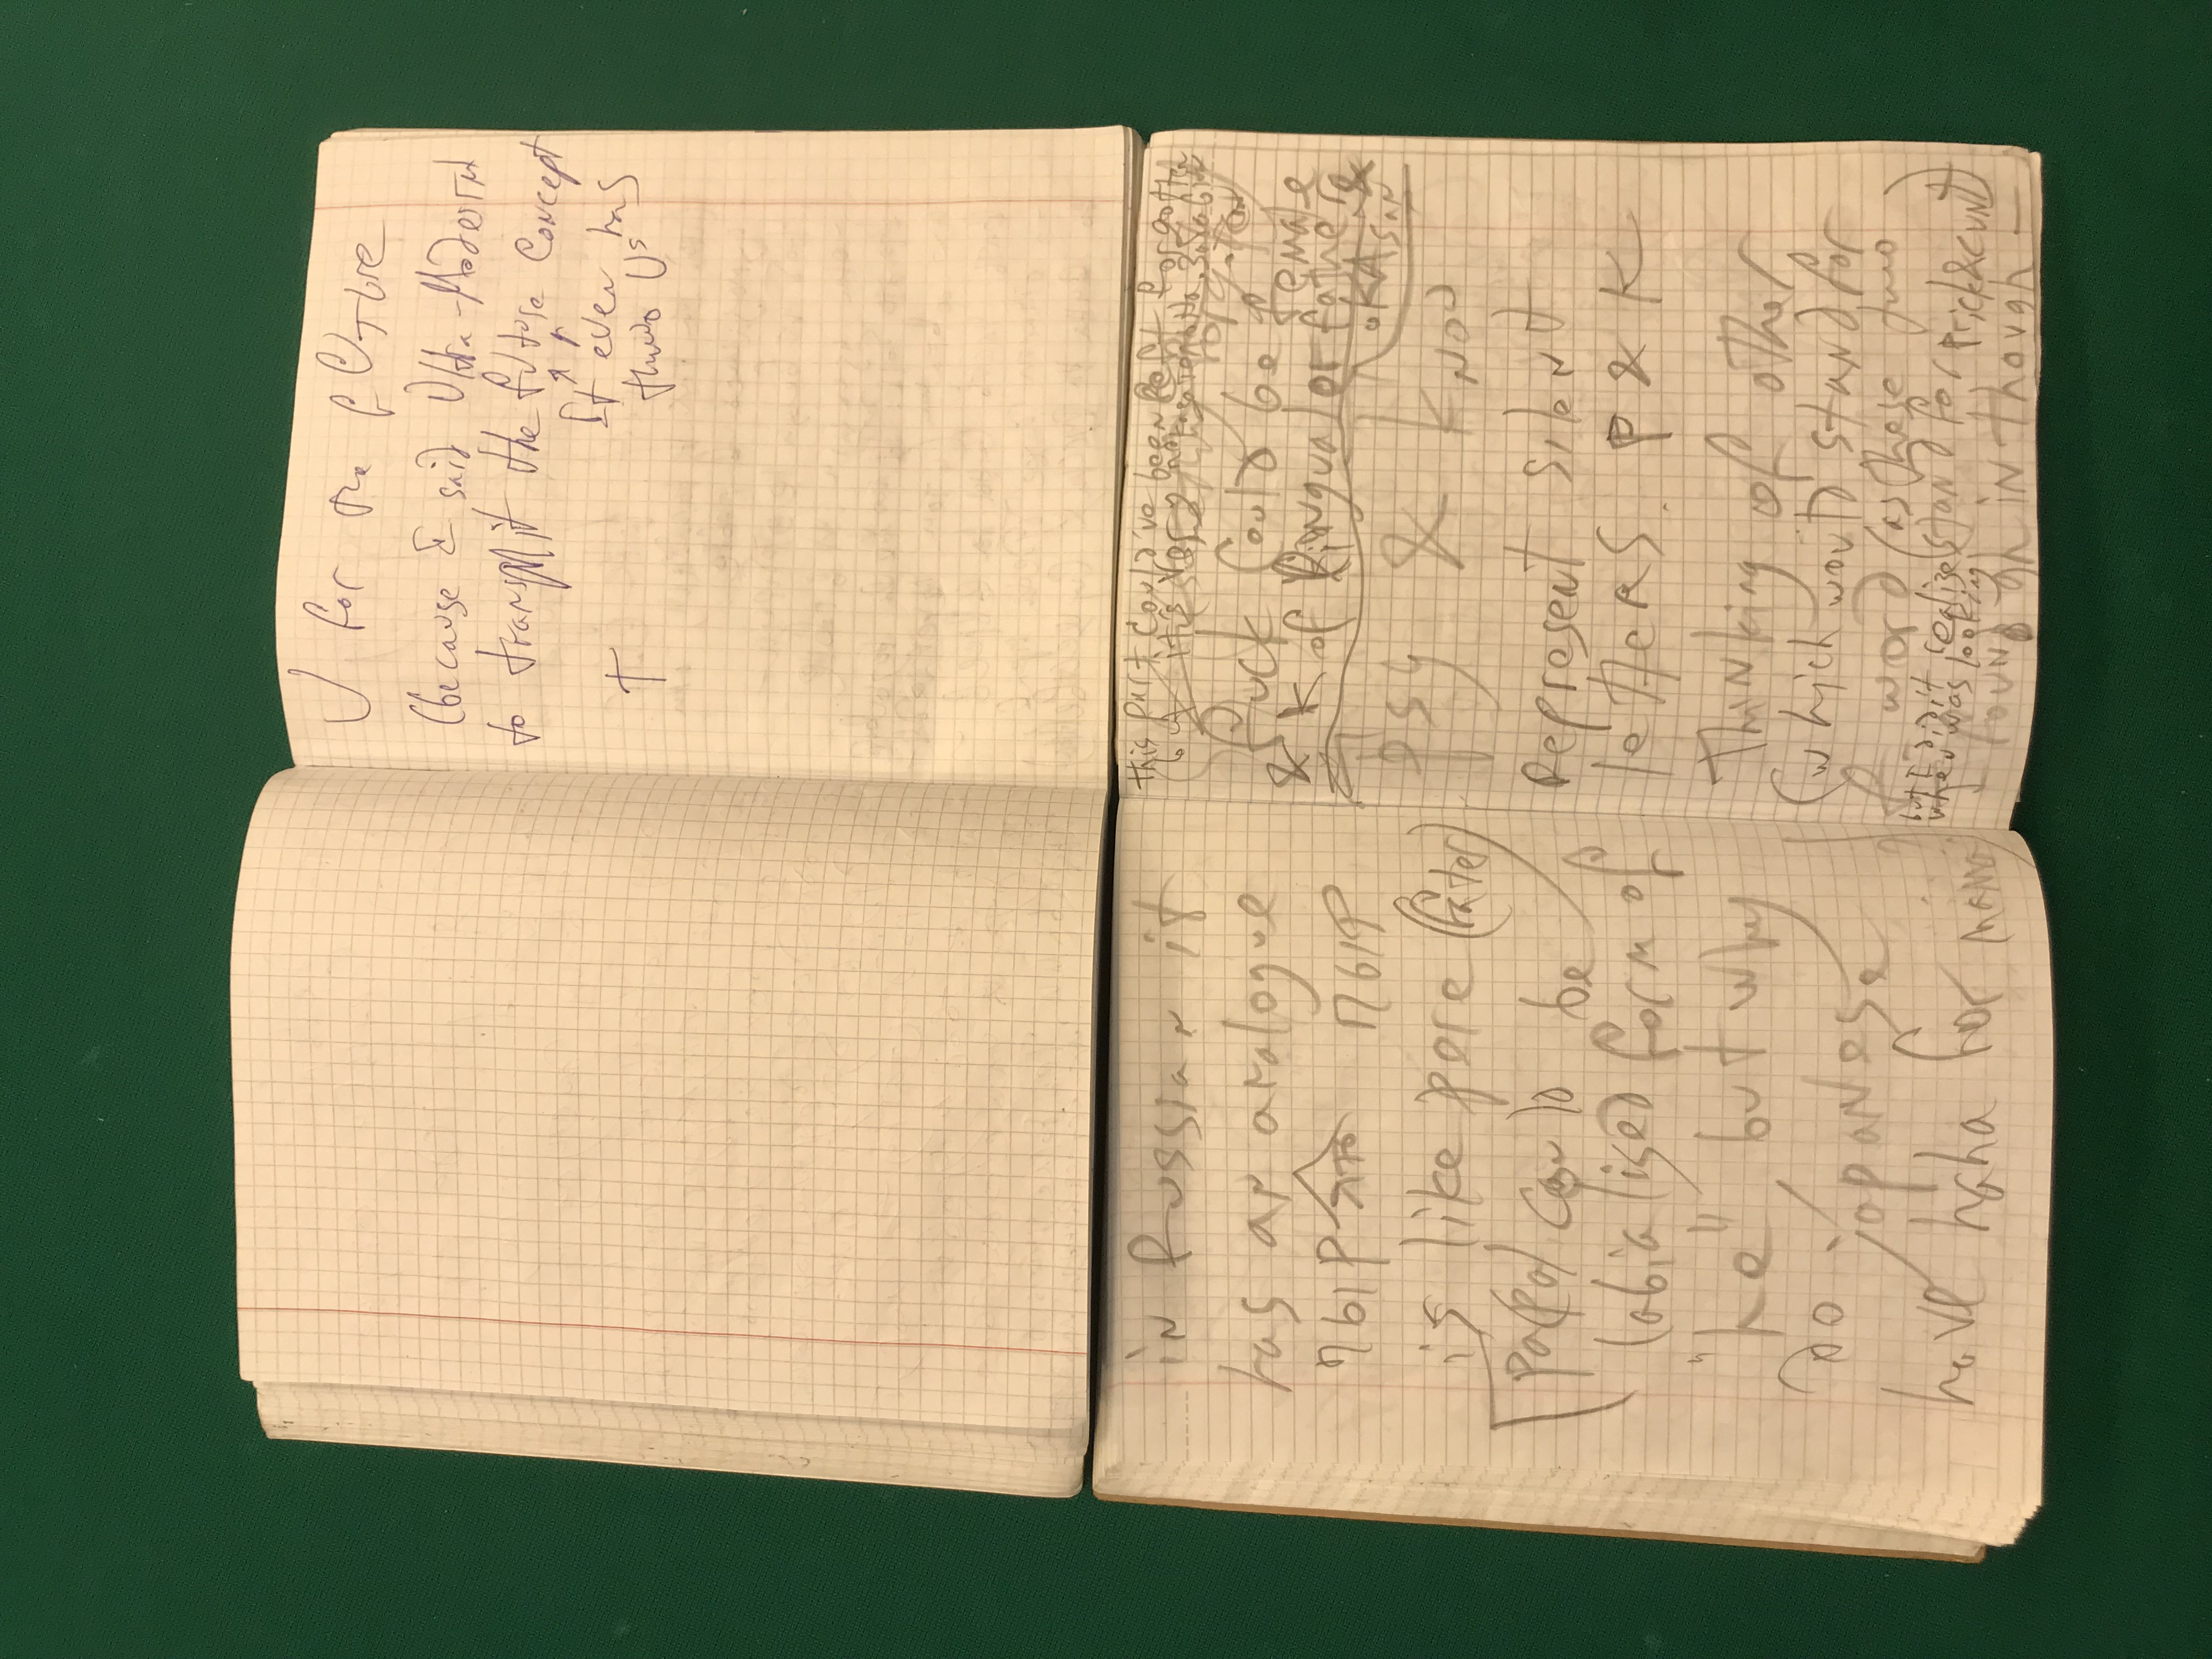 U for the fUTUre
(because I said Ultra-Modernt
to transMit the future concept
It even has
thwo Us
T
in Russian it
has an analogue
пыр пыр
is like pere (fater)
papa) could be
labialised form of
"he" but why
do japanese
have haha for mama
this part could've been left forgotten
but it is very
forgotten
fuck could be female
& K of Kingual or father &
oKAsan
psy & know
represent silent
letters. P & K
Thinking of other
(which would stand for
f word (as these two
stand for prick&cunt)
but I didn't realise
when was looking
found gh in though —